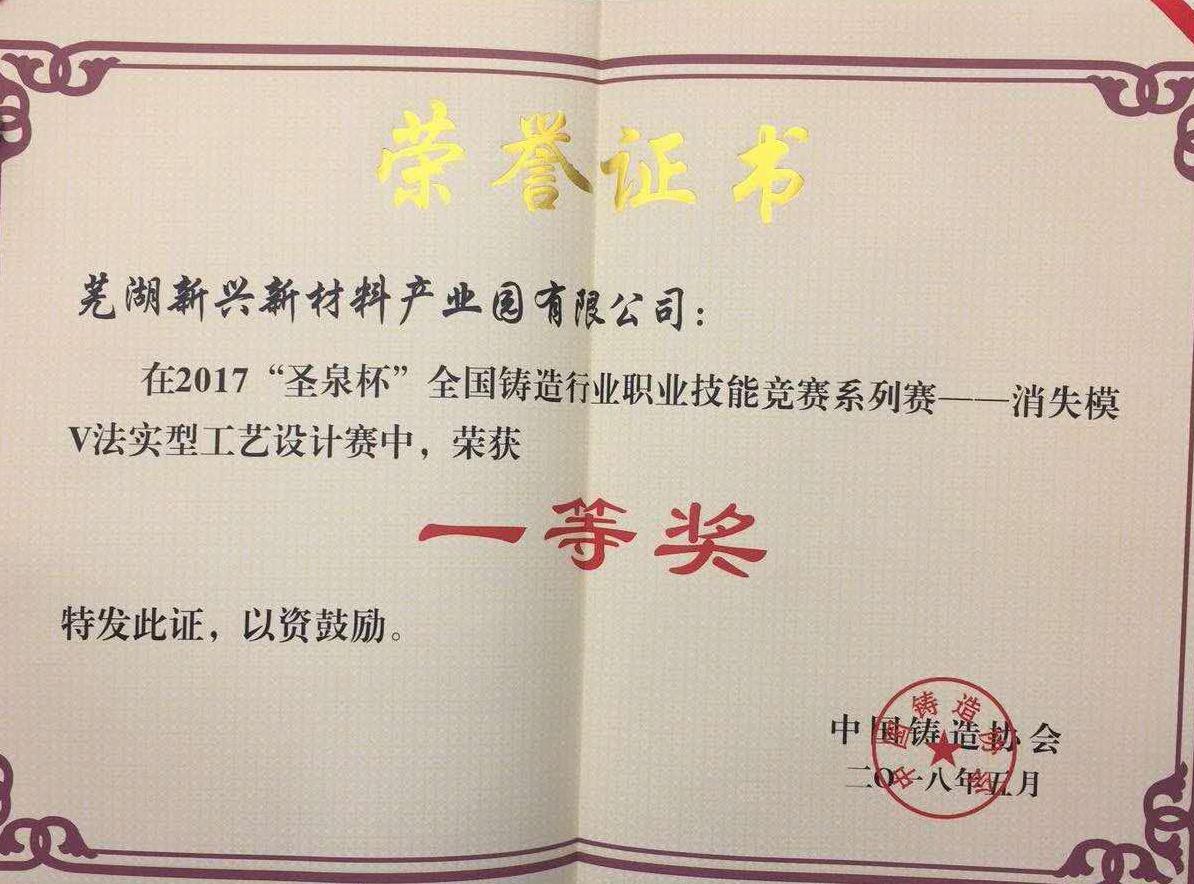 荣誉证书
芜湖新兴新材料产业园有限公司：
在2017“圣泉杯”全国铸造行业职业技能竞赛系列赛——消失模
V法实型工艺设计赛中，荣获
一等奖
特发此证，以资鼓励。
中国铸造协会
二〇一八年五月
中国铸造协会